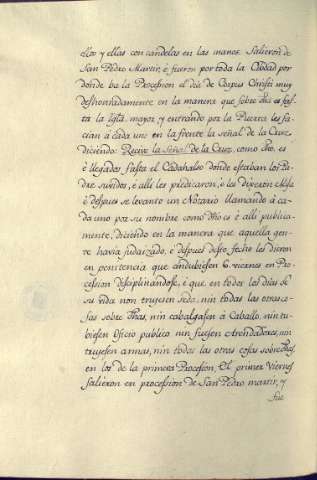 ellos y ellas con candelas en las manos. Salieron de
San Pedro Martir, é fueron por toda la Ciudad por
donde ba la Procesion el dia de Corpus Christi muy
deshonradamente en la manera que sobre dho es fas-
ta la Iglã mayor, y entrando por la Puerta les fa-
cian á cada uno en la frente la señal de la Cruz,
diciendo: Recive la Señal de la Cruz. como dho. es
é llegados, fasta el Cadahalso donde estaban los Pa-
dres suvidos, é alli les predicaron, é les dixeron Misa
é despues se levanto un Notario llamando á ca-
da uno por su nombre como dho es é alli publica-
mente, diciendo en la manera que aquella gen-
te havia judaizado, é despues desto fecho les dieron
en penitencia que andubiesen 6. viernes en Pro-
cession disciplinandose, é que en todos los dias de
su vida non truxesen seda, nin todas las otras co-
sas sobre dhas, nin cabalgasen á Caballo, nin tu-
biesen Oficio publico nin fuesen Arendadores, nin
truxesen armas, nin todas las otras cosas sobredhas,
en los de la primera Procesion. El primer Viernes
salieron en procession de San Pedro martir, y
fue